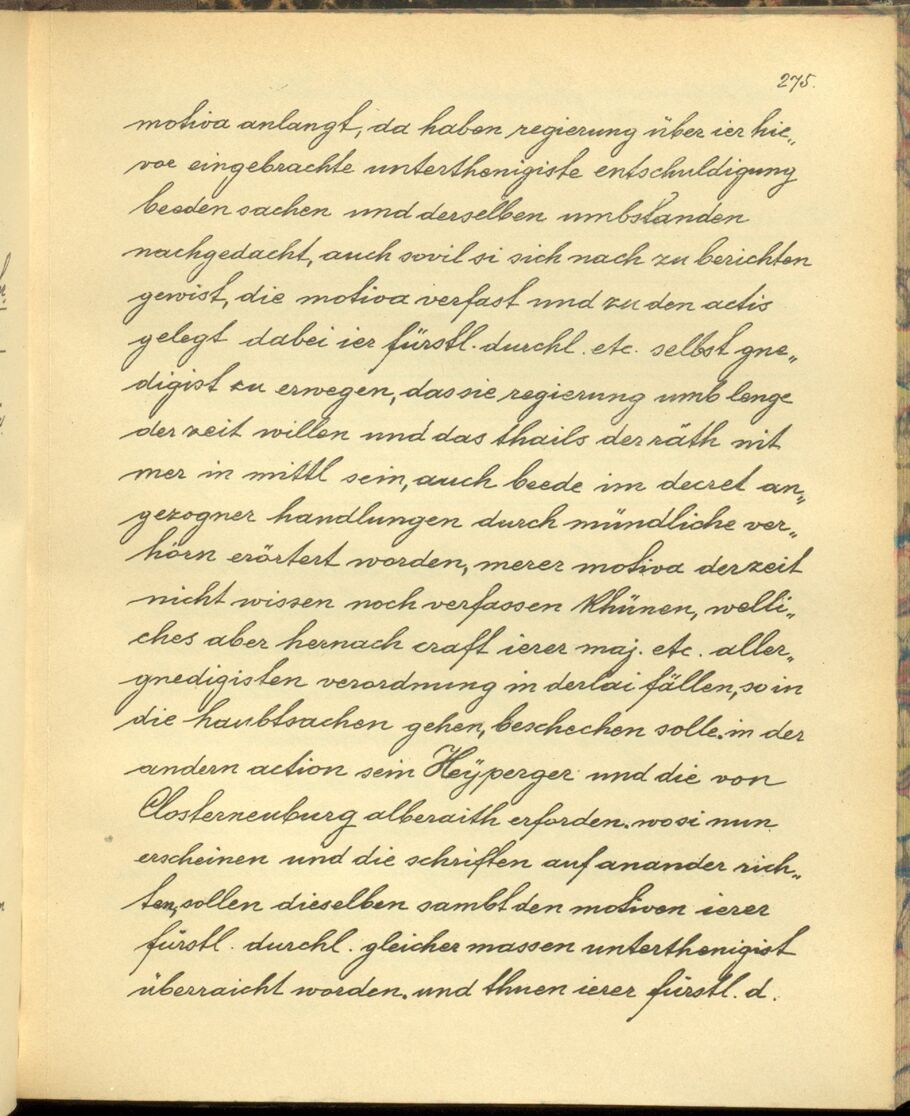 275.
motiva anlangt, da haben regierung über ier hie„
vor eingebrachte unterthenigiste entschuldigung
beeden sachen und derselben umbstanden
nachgedacht, auch sovil si sich nach zu berichten
gewist, die motiva verfast und zu den actis
gelegt dabei ier fürstl. durchl. etc. selbst gne„
digist zu erwegen, das sie regierung umb lenge
der zeit willen und das thails der räth nit
mer in mittl sein, auch beede im decret an„
gezogner handlungen durch mündliche ver„
hörn erörtert worden, merer motiva derzeit
nicht wissen noch verfassen khünen, welli„
ches aber hernach craft ierer maj. etc. aller„
gnedigisten verordnung in derlai fällen, so in
die haubtsachen gehen, beschechen solle. in der
andern action sein Heÿperger und die von
Closterneuburg alberaith erforden. wo si nun
erscheinen und die schriften auf anander rich„
ten, sollen dieselben sambt den motiven ierer
fürstl. durchl. gleicher massen unterthenigist
überraicht worden. und thuen ierer fürstl. d.